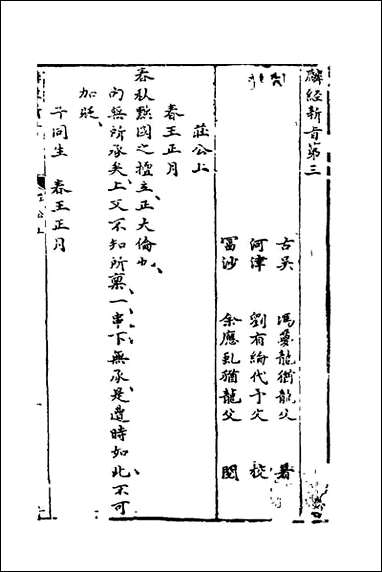 麟經新旨第三
古吳 馮夢龍猶龍父 著
河津 劉有綸代予父 校
富沙 余應虬猶龍父 閱
莊公上
春王正月
春秋黜國之擅立正大倫也
內無所承矣上又不知所稟一串下無承是遭時如此不可
加貶
子同生 春王正月